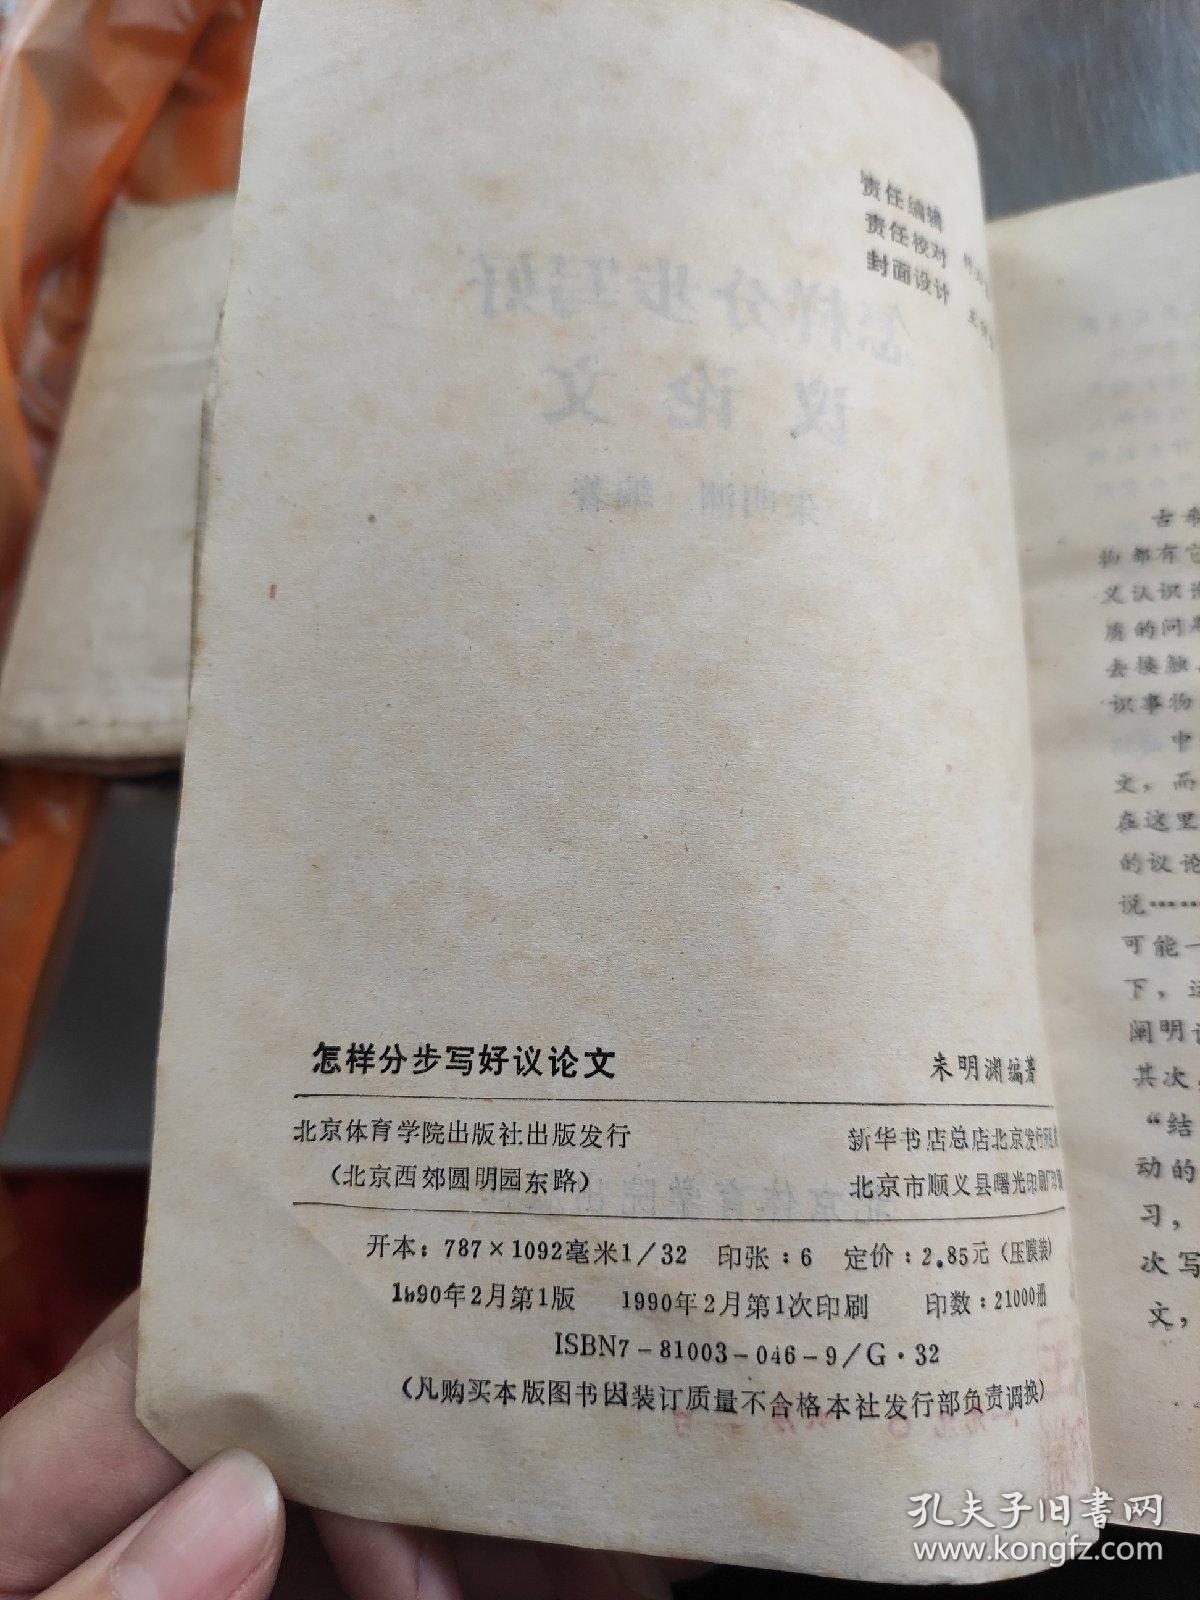 责任编辑
责任校对
封面设计
怎样分步写好
议论文
朱明渊 编著
怎样分步写好议论文 朱明渊编著
北京体育学院出版社出版发行 新华书店总店北京发行所
(北京西郊圆明园东路) 北京市顺义县曙光印刷厂印刷
开本:787×1092毫米1/32 印张:6 定价:2.85元(压膜装)
1990年2月第1版 1990年2月第1次印刷 印数:21000册
ISBN7-81003-046-9/G·32
(凡购买本版图书因装订质量不合格本社发行部负责调换)
古希
物都有它
义认识
质的问
去接触
识事物
中
文,而
在这里
的议论
说……
可能一
下,
阐明
其次
“结
动的
习,
次写
文,
孔夫子旧书网
www.kongfz.com